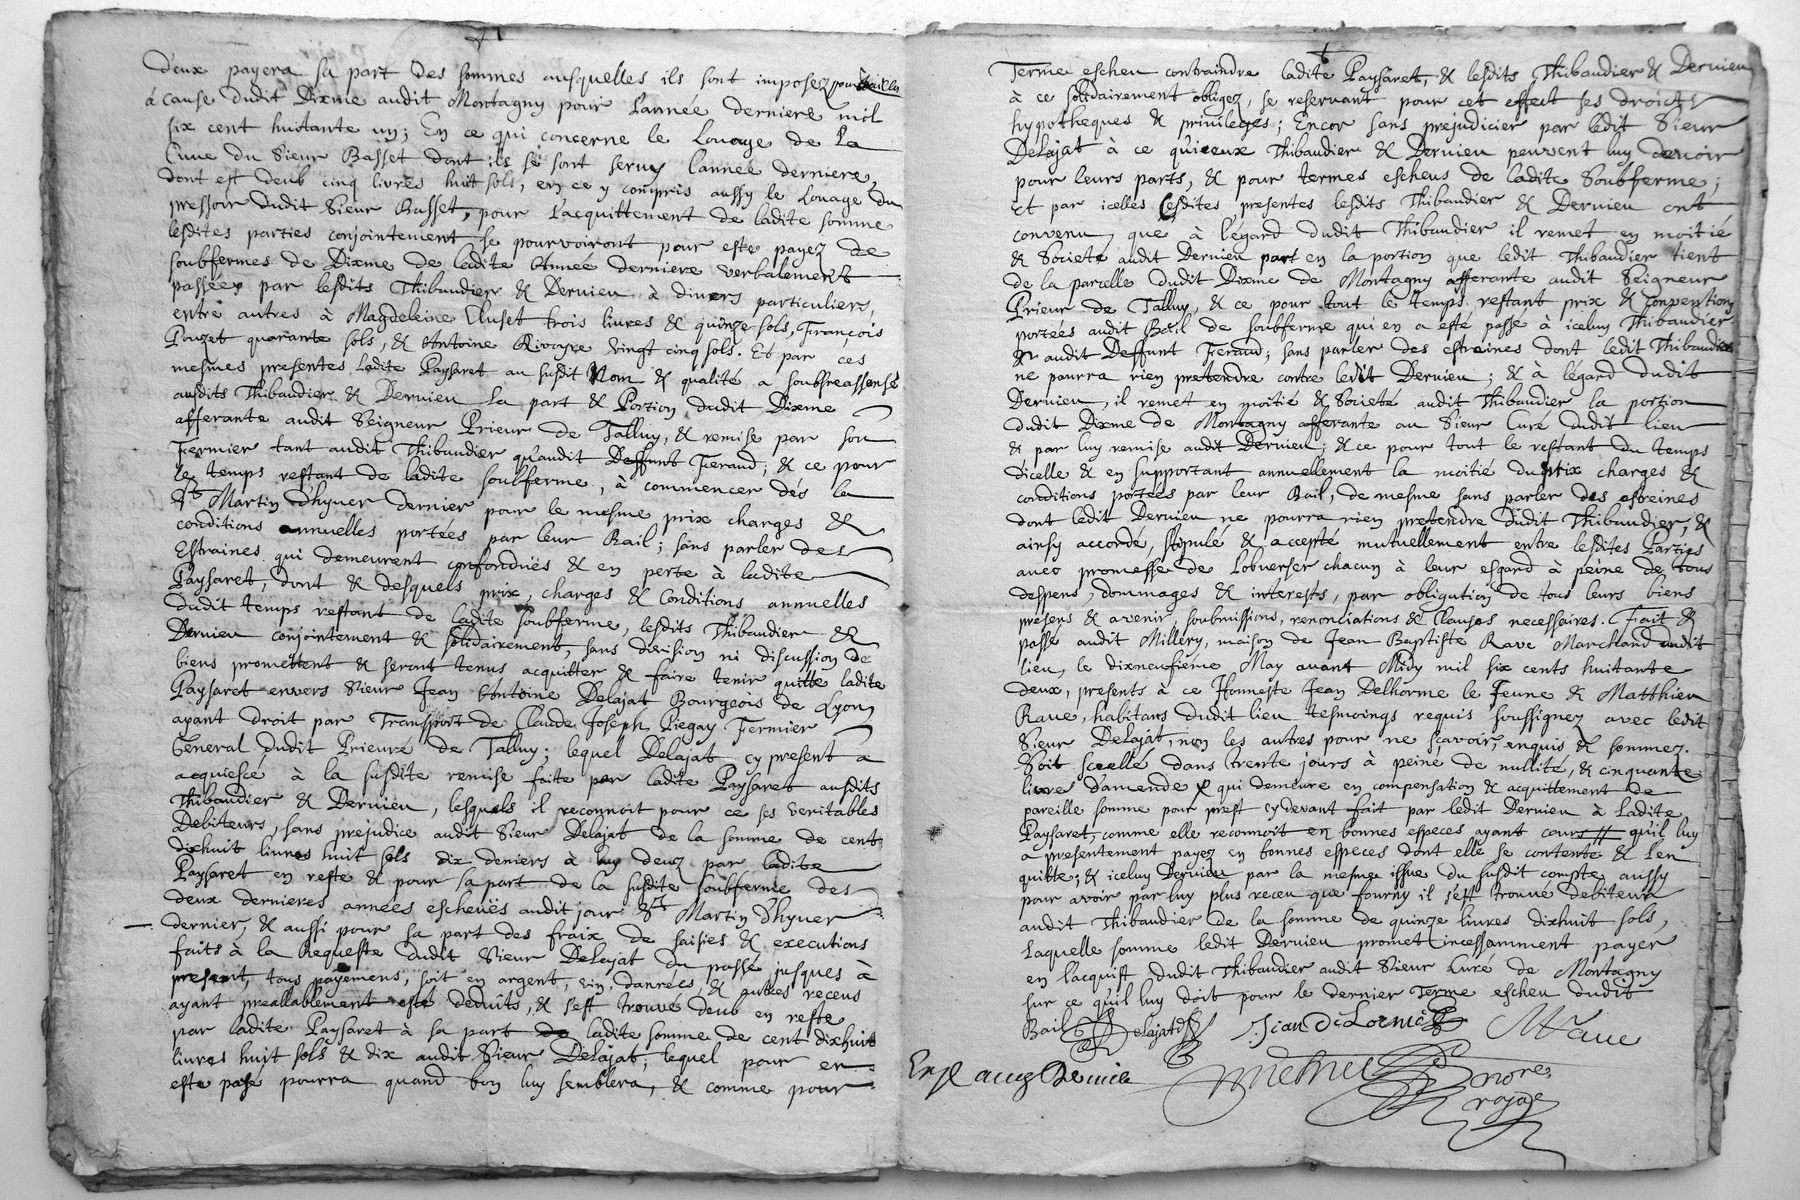 deux payera sa part des sommes ausquelles ils sont imposez pour tailles
à cause dudit Dixme audit Montagny pour l'année derniere mil
six cent huitante un; En ce qui concerne le Louage de La
Cuve du Sieur Basset dont ils se sont servy l'année derniere,
dont est deub cinq livres huit sols, en ce y compris aussy le Louage du
pressoir dudit Sieur Basset, pour l'acquittement de ladite somme
lesdites parties conjointement se pourvoiront pour estre payez de
soubfermes de Dixme de ladite Année derniere verbalement
passées par lesdits Thibaudier & Dervieu à divers particuliers,
entre autres à Magdeleine Cluset trois livres & quinze sols, François
Pouzet quarante sols, & Antoine Rivoyre vingt cinq sols. Et par ces
mesmes presentes ladite Paysaret au susdit Nom & qualité a soubsreassensé
ausdits Thibaudier & Dervieu la part & Portion dudit Dixme
afferante audit Seigneur Prieur de Talluy, & remise par son
Fermier tant audit Thibaudier qu'audit Deffunt Feraud; & ce pour
le temps restant de ladite soubferme, à commencer dés la
St Martin d'hyver dernier pour le mesme prix charges &
conditions annuelles portées par leur Bail; sans parler des
Estraines qui demeurent confonduës & en perte à ladite
Paysaret, dont & desquels prix, charges & Conditions annuelles
dudit temps restant de ladite soubferme, lesdits Thibaudier &
Dervieu conjointement & solidairement, sans division ni discussion de
biens promettent & seront tenus acquitter & faire tenir quitte ladite
Paysaret envers Sieur Jean Antoine Delajat Bourgeois de Lyon
ayant droit par Transport de Claude Joseph Piegay Fermier
General dudit Prieuré de Talluy; lequel Delajat cy present a
acquiescé à la susdite remise faite par ladite Paysaret ausdits
Thibaudier & Dervieu, lesquels il reconnoit pour ce ses veritables
Debiteurs, sans prejudice audit Sieur Delajat de la somme de cent
dixhuit livres huit sols dix deniers à luy deuz par ladite
Paysaret en reste & pour sa part de la susdite soubferme des
deux dernieres années escheuës audit jour St Martin d'hyver
dernier, & aussi pour sa part des fraix de saisies & executions
faits à la Requeste dudit Sieur Delajat du passé jusques à
present, tous payemens, soit en argent, vin, danrées, & autres receus
ayant preallablement esté deduits, & s'est trouvé deub en reste
par ladite Paysaret à sa part ladite somme de cent dixhuit
livres huit sols & dix audit Sieur Delajat; lequel pour en
estre payé pourra quand bon luy semblera, & comme pour
Terme escheu contraindre ladite Paysaret, & lesdits Thibaudier & Dervieu
à ce solidairement obligez, se reservant pour cet effect ses droicts
hypotheques & privileges; Encor sans prejudicier par ledit Sieur
Delajat à ce qu'iceux Thibaudier & Dervieu peuvent luy devoir
pour leurs parts, & pour termes escheus de ladite Soubferme;
Et par icelles Lesdites presentes lesdits Thibaudier & Dervieu ont
convenu, que à l'égard dudit Thibaudier il remet en moitié
& Societé audit Dervieu part en la portion que ledit Thibaudier tient
de la parcelle dudit Dixme de Montagny afferante audit Seigneur
Prieur de Talluy, & ce pour tout le temps restant prix & conventions
portées audit Bail de soubferme qui en a esté passé à iceluy Thibaudier
& audit Deffunt Feraud; sans parler des estreines dont ledit Thibaudier
ne pourra rien pretendre contre ledit Dervieu; & à l'égard dudit
Dervieu, il remet en moitié & Societé audit Thibaudier la portion
dudit Dixme de Montagny afferante au Sieur Curé dudit lieu
& par luy remise audit Dervieu; & ce pour tout le restant du temps
d'icelle & en supportant annuellement la moitié du prix charges &
conditions portées par leur Bail, de mesme sans parler des estreines
dont ledit Dervieu ne pourra rien pretendre dudit Thibaudier, &
ainsy accordé, stipulé & accepté mutuellement entre lesdites Parties
avec promesse de l'observer chacun à leur esgard à peine de tous
despens, dommages & interests, par obligation de tous leurs biens
presens & avenir, soubmissions, renonciations & Clauses necessaires. Fait &
passé audit Millery, maison de Jean Baptiste Rave Marchand audit
lieu, le dixneufieme May avant Midy mil six cents huitante
deux, presents à ce Honneste Jean Delhorme le Jeune & Matthieu
Rave, habitans dudit lieu tesmoings requis soussignez avec ledit
Sieur Delajat, non les autres pour ne sçavoir, enquis & sommez.
Soit scellé dans trente jours à peine de nullité, & cinquante
livre d'amende & qui demeure en compensation & acquittement de
pareille somme pour prest cy devant fait par ledit Dervieu à Ladite
Paysaret, comme elle reconnoit en bonnes especes ayant cours // qu'il luy
a presentement payez en bonnes especes dont elle se contente & l'en
quitte; & iceluy Dervieu par la mesme issue du susdit compte aussy
pour avoir par luy plus receu que fourny il s'est trouvé debiteur
audit Thibaudier de la somme de quinze livres dixhuit sols,
Laquelle somme ledit Dervieu promet incessamment payer
en l'acquist dudit Thibaudier audit Sieur Curé de Montagny
sur ce qu'il luy doit pour le dernier Terme escheu dudit
Bail Delajat Jean Delorme MRave
Expl aux Dervieu
nore
royal